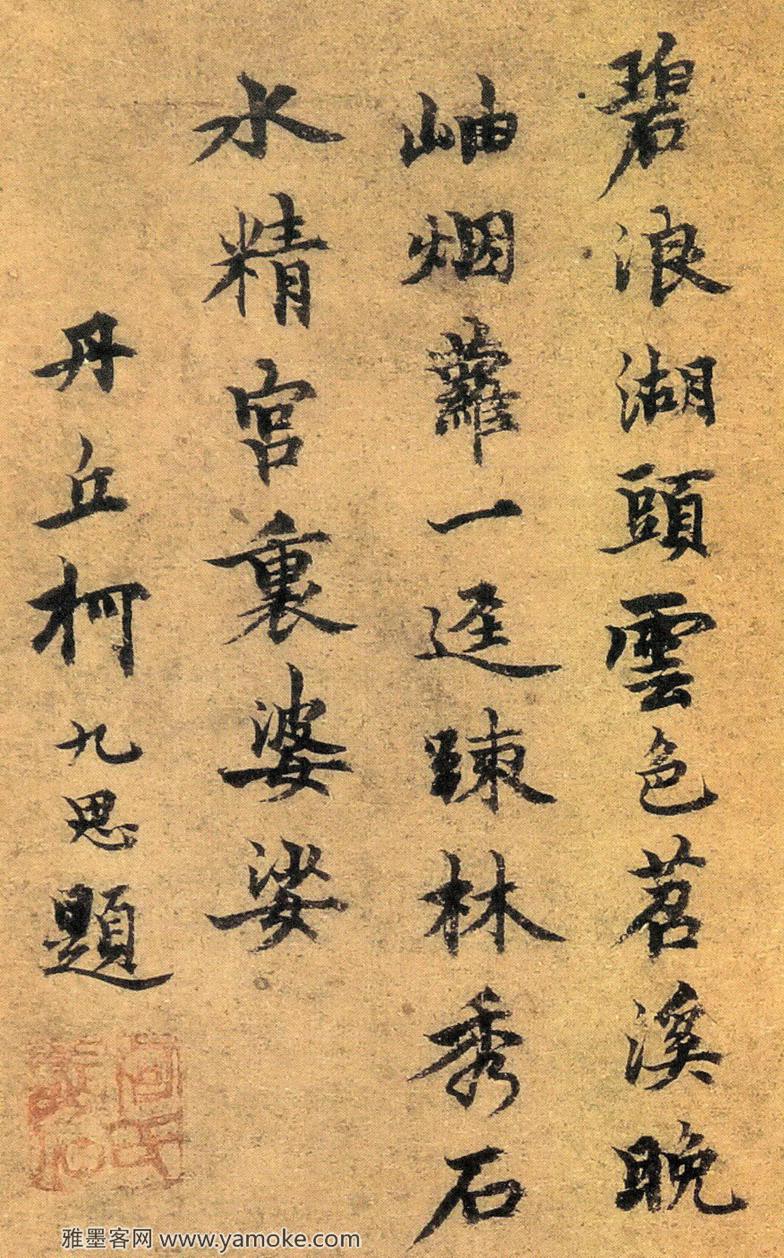 碧浪湖頭雲色苕溪晚
岫烟蘿一迳踈林秀石
水精宮裏婆娑
丹丘柯九思題
雅墨客网 www.yamoke.com